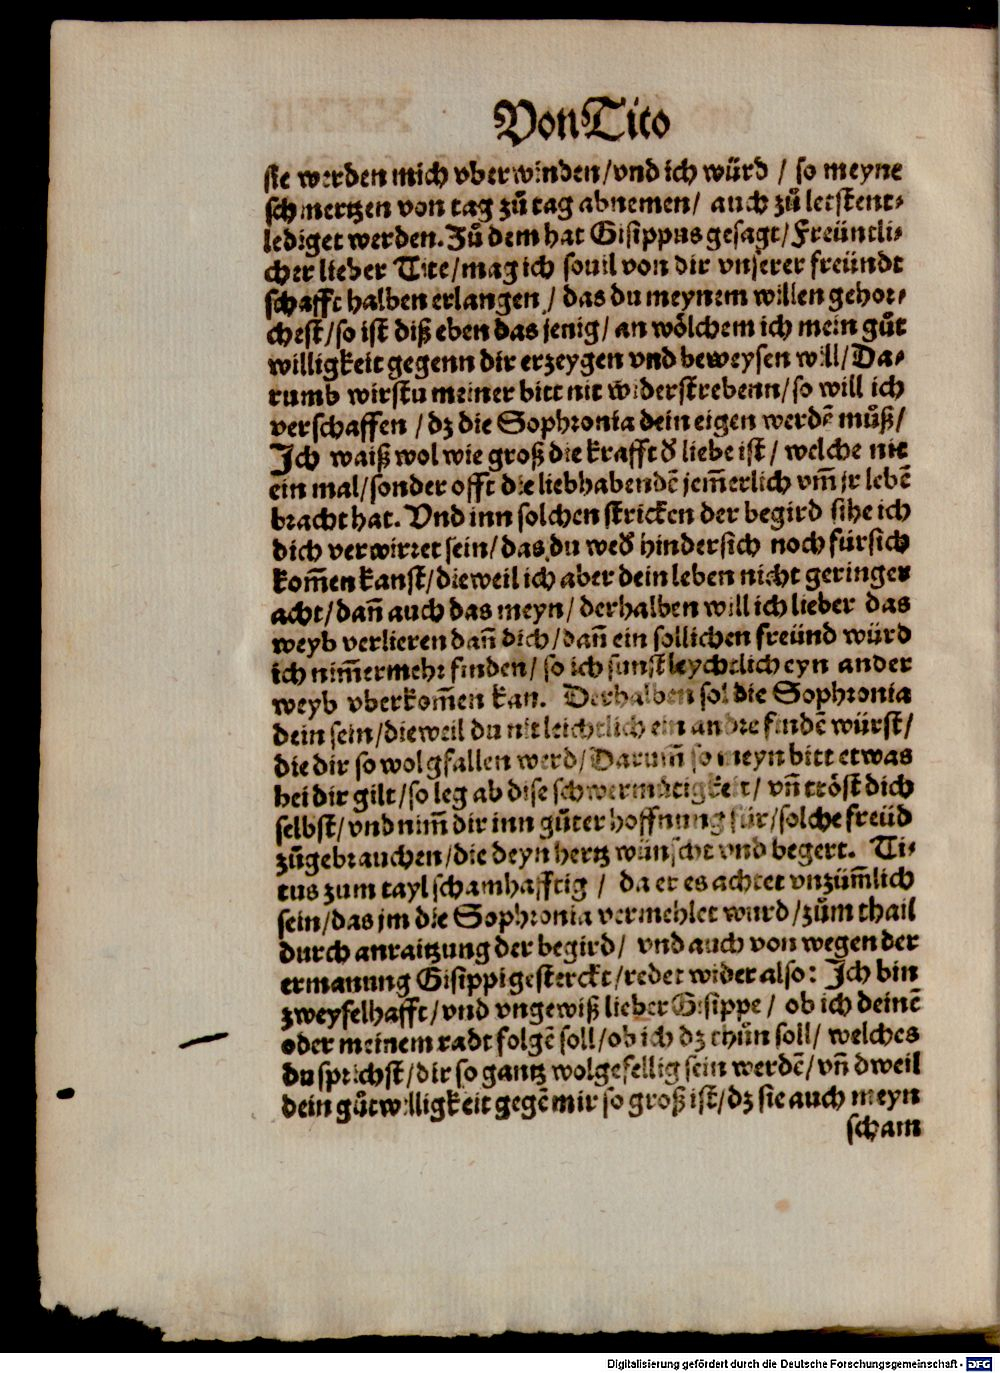 Von Tito
sie werden mich vberwinden/vnd ich würd / so meyne
schmertzen von tag zů tag abnemen/ auch zů letst ent⸗
lediget werden. Zů dem hat Gisippus gesagt/Freüntli⸗
cher lieber Tite/mag ich souil von dir vnserer freündt
schafft halben erlangen / das du meynem willen gehor⸗
chest/so ist diß eben das jenig/ an wölchem ich mein gůt
willigkeit gegenn dir erzeygen vnd beweysen will/Da⸗
rumb wirstu meiner bitt nit widerstrebenn/so will ich
verschaffen /dz die Sophronia dein eigen werdē můß/
Ich waiß wol wie groß die krafft d̕ liebe ist/ welche nit
ein mal/sonder offt die liebhabendē jem̄erlich vm̄ jr lebē
bracht hat. Vnd inn solchen stricken der begird sihe ich
dich verwirret sein/das du wed̕ hindersich noch fürsich
kom̄en kanst/dieweil ich aber dein leben nicht geringer
acht/dañ auch das meyn/ derhalben will ich lieber das
weyb verlieren dañ dich/dañ ein sollichen freünd würd
ich nim̄ermehr finden/ so ich sunst leychtlich eyn ander
weyb vberkom̄en kan. Derhalben sol die Sophronia
dein sein/dieweil du nit leichtlich ein andre findē würst/
die dir so wol gfallen werd/Darum̄ so meyn bitt etwas
bei dir gilt/so leg ab dise schwermütigkeit/ vñ tröst dich
selbst/vnd nim̄ dir inn gůter hoffnung für/solche freüd
zůgebrauchen/die deyn hertz wünscht vnd begert. Ti⸗
tus zum tayl schamhafftig / da er es achtet vnzüm̄lich
sein/das jm die Sophronia vermehlet wurd/zům thail
durch anraitzung der begird/ vnd auch von wegen der
ermanung Gisippi gesterckt/redet wider also: Ich bin
zweyfelhafft/vnd vngewiß lieber Gisippe/ ob ich deinē
oder meinem radt folgē soll/ob ich dz thůn soll/ welches
du sprichst/dir so gantz wolgefellig sein werdē/vñ dweil
dein gůtwilligkeit gegē mir so groß ist/dz sie auch meyn
scham
Digitalisierung gefördert durch die Deutsche Forschungsgemeinschaft - DFG